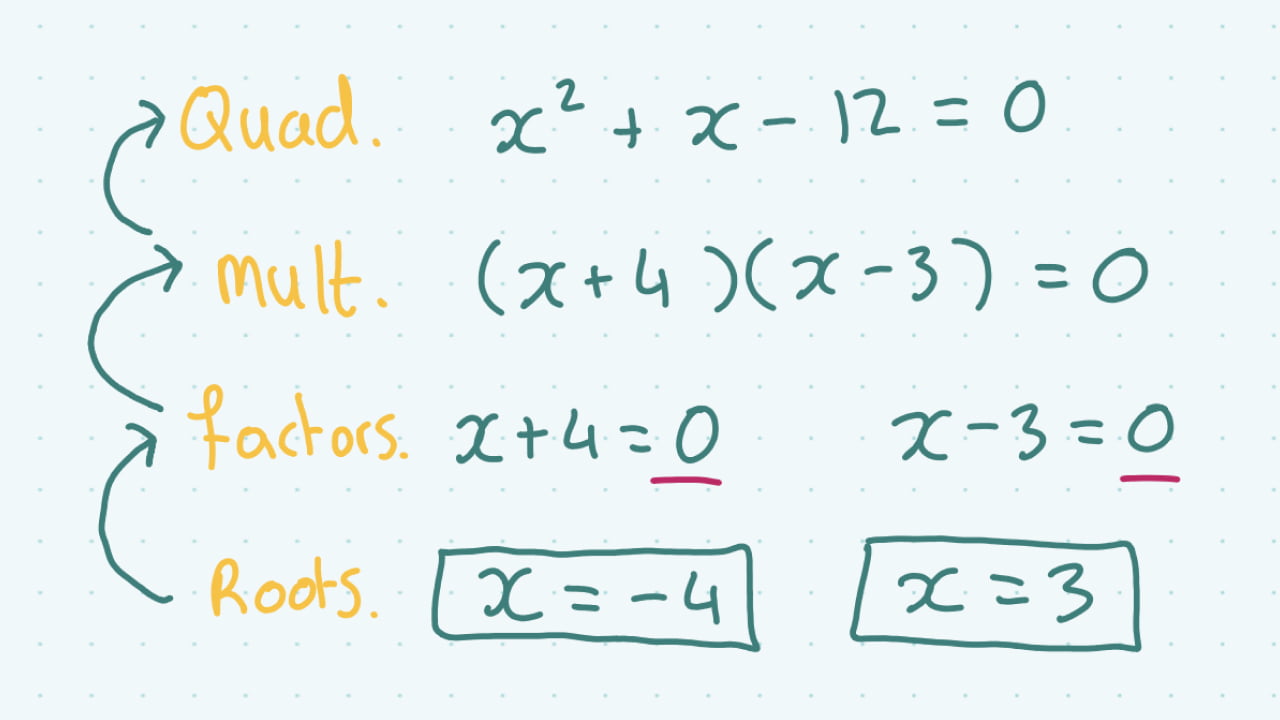 Quad. x² + x - 12 = 0
Mult. (x + 4)(x - 3) = 0
factors. x + 4 = 0 x - 3 = 0
Roots. x = -4 x = 3